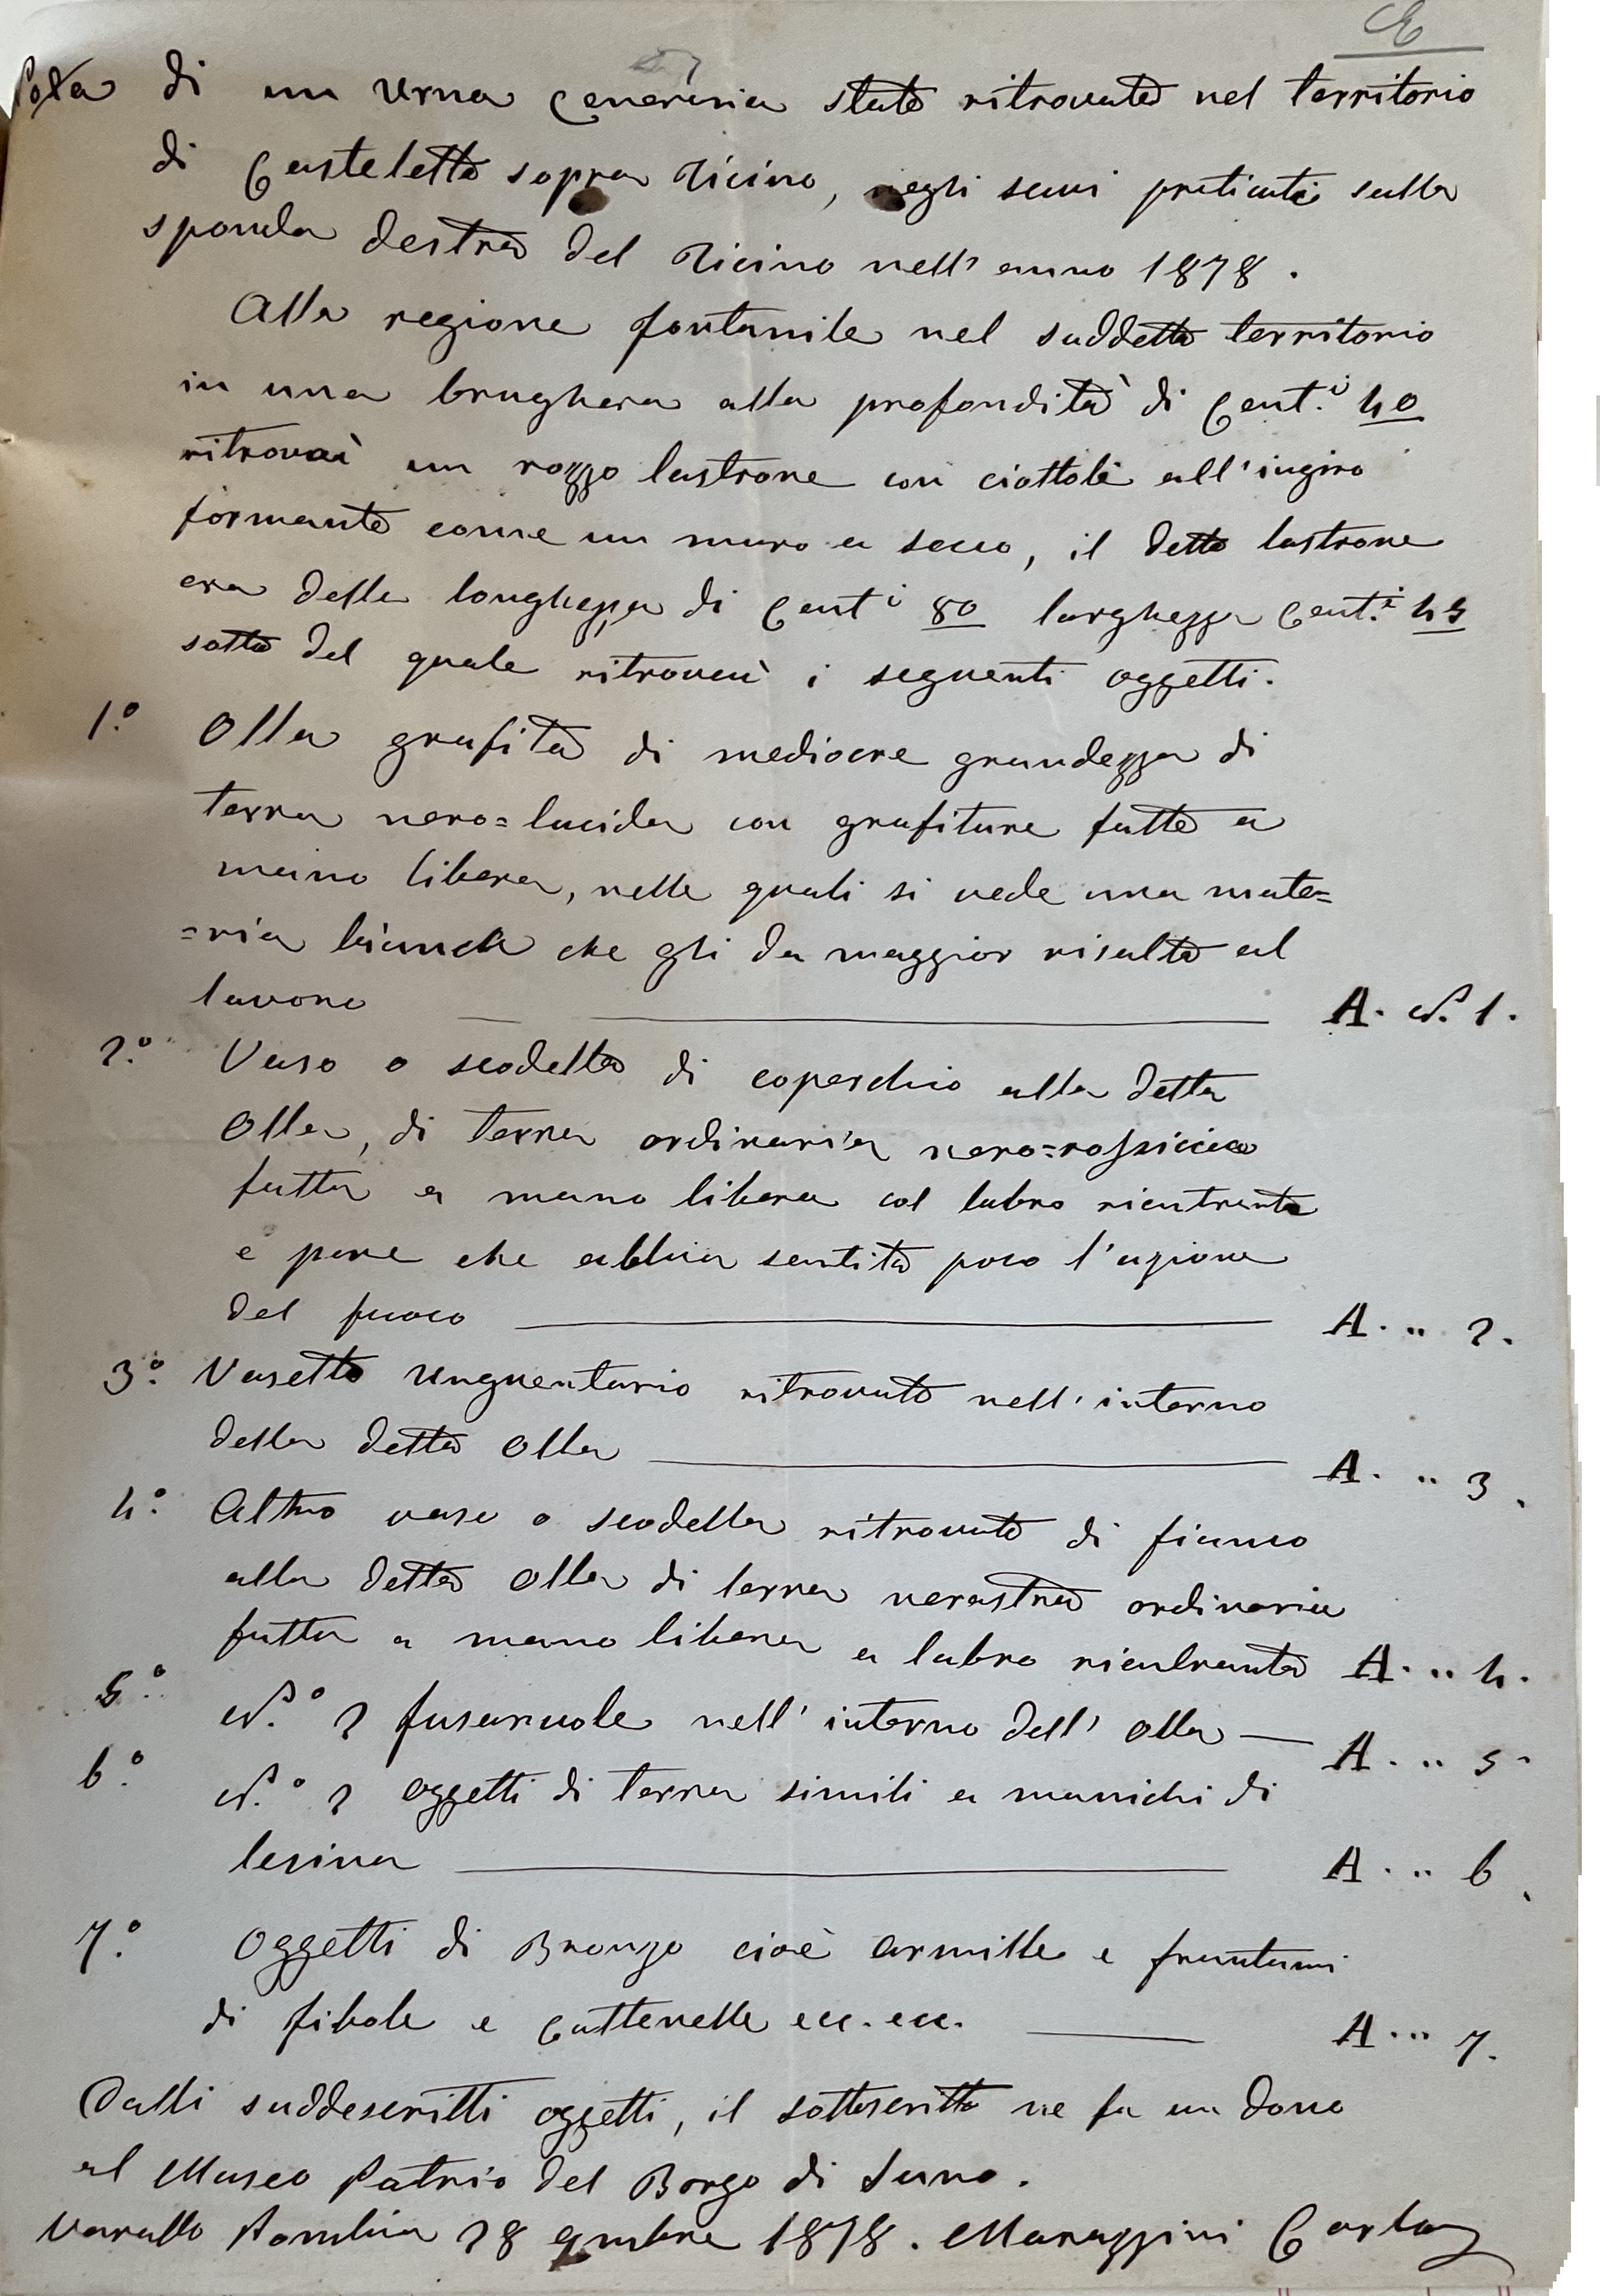 E
Nota di un Urna Ceneraria stata ritrovata nel territorio
di Casteletto sopra Ticino, negli scavi praticati sulla
sponda destra del Ticino nell' anno 1878.
Alla regione fontanile nel suddetto territorio
in una brughera alla profondità di Cent.i 40
ritrovai un rozzo lastrone con ciottoli all'ingiro
formante come un muro a secco, il detto lastrone
era della longhezza di Cent.i 80 larghezza Cent.i 45
sotto del quale ritrovai i seguenti oggetti.
1.° Olla grafita di mediocre grandezza di
terra nero=lucida con grafiture fatte a
mano libera, nelle quali si vede una mate=
=ria bianca che gli da maggior risalto al
lavoro A. N. 1.
2.° Vaso o scodella di coperchio alla detta
Olla, di terra ordinaria nero=rossiccia
fatta a mano libera col labro rientrante
e pare che abbia sentito poco l'azione
del fuoco A. " 2.
3.° Vasetto Unguentario ritrovato nell'interno
della detta Olla A. " 3.
4.° Altro vaso o scodella ritrovato di fianco
alla detta Olla di terra nerastra ordinaria
fatta a mano libera a labro rientrante A. " 4.
5.° N.° 2 fusaruole nell' interno dell' Olla — A. " 5
6.° N.° 2 Oggetti di terra simili a manichi di
lesina A. " 6.
7.° Oggetti di Bronzo cioè armille e frantumi
di fibole e Cattenelle ecc. ecc. A. " 7.
Dalli suddescritti oggetti, il sottoscritto ne fa un dono
al Museo Patrio del Borgo di Suno.
Varallo Pombia 28 9mbre 1878. Marazzini Carlo